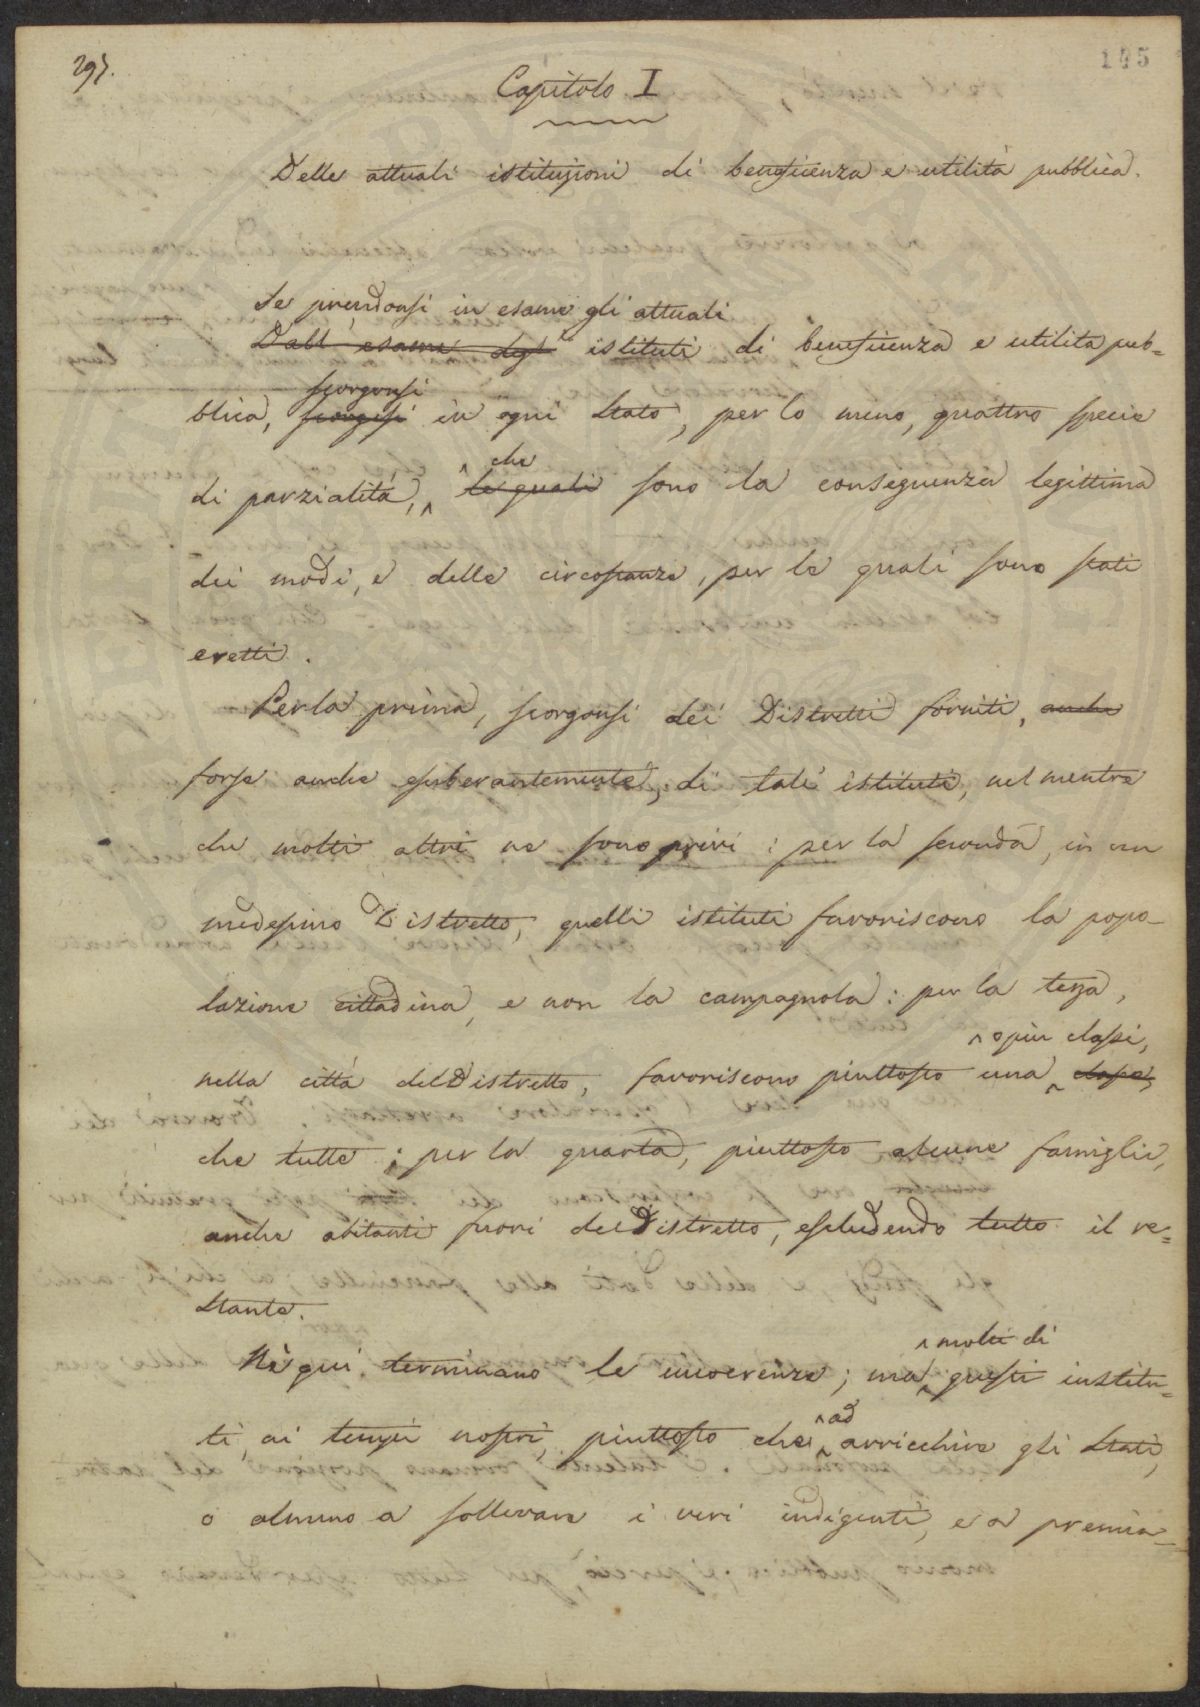 297.
145
Capitolo I
Delle attuali istituzioni di beneficenza e utilità pubblica.
Se prendonsi in esame gli attuali
Dall' esame degl' istituti di beneficenza e utilità pub=
scorgonsi
blica, scorgesi in ogni Stato, per lo meno, quattro specie
che
di parzialità, le quali sono la conseguenza legittima
dei modi, e delle circostanze, per le quali sono stati
eretti.
Per la prima, scorgonsi dei Distretti forniti, anche
forse anche esuberantemente, di tali istituti, nel mentre
che molti altri ne sono privi: per la seconda, in un
medesimo Distretto, quelli istituti favoriscono la popo-
lazione cittadina, e non la campagnola: per la terza,
o più classi,
nella città del Distretto, favoriscono piuttosto una classe,
che tutte; per la quarta, piuttosto alcune famiglie,
anche abitanti fuori del Distretto, escludendo tutto il re=
stante.
molti di
Nè qui terminano le incoerenze; ma questi institu=
ad
ti, ai tempi nostri, piuttosto che arricchire gli Stati,
o almeno a sollevare i veri indigenti, e a premia=